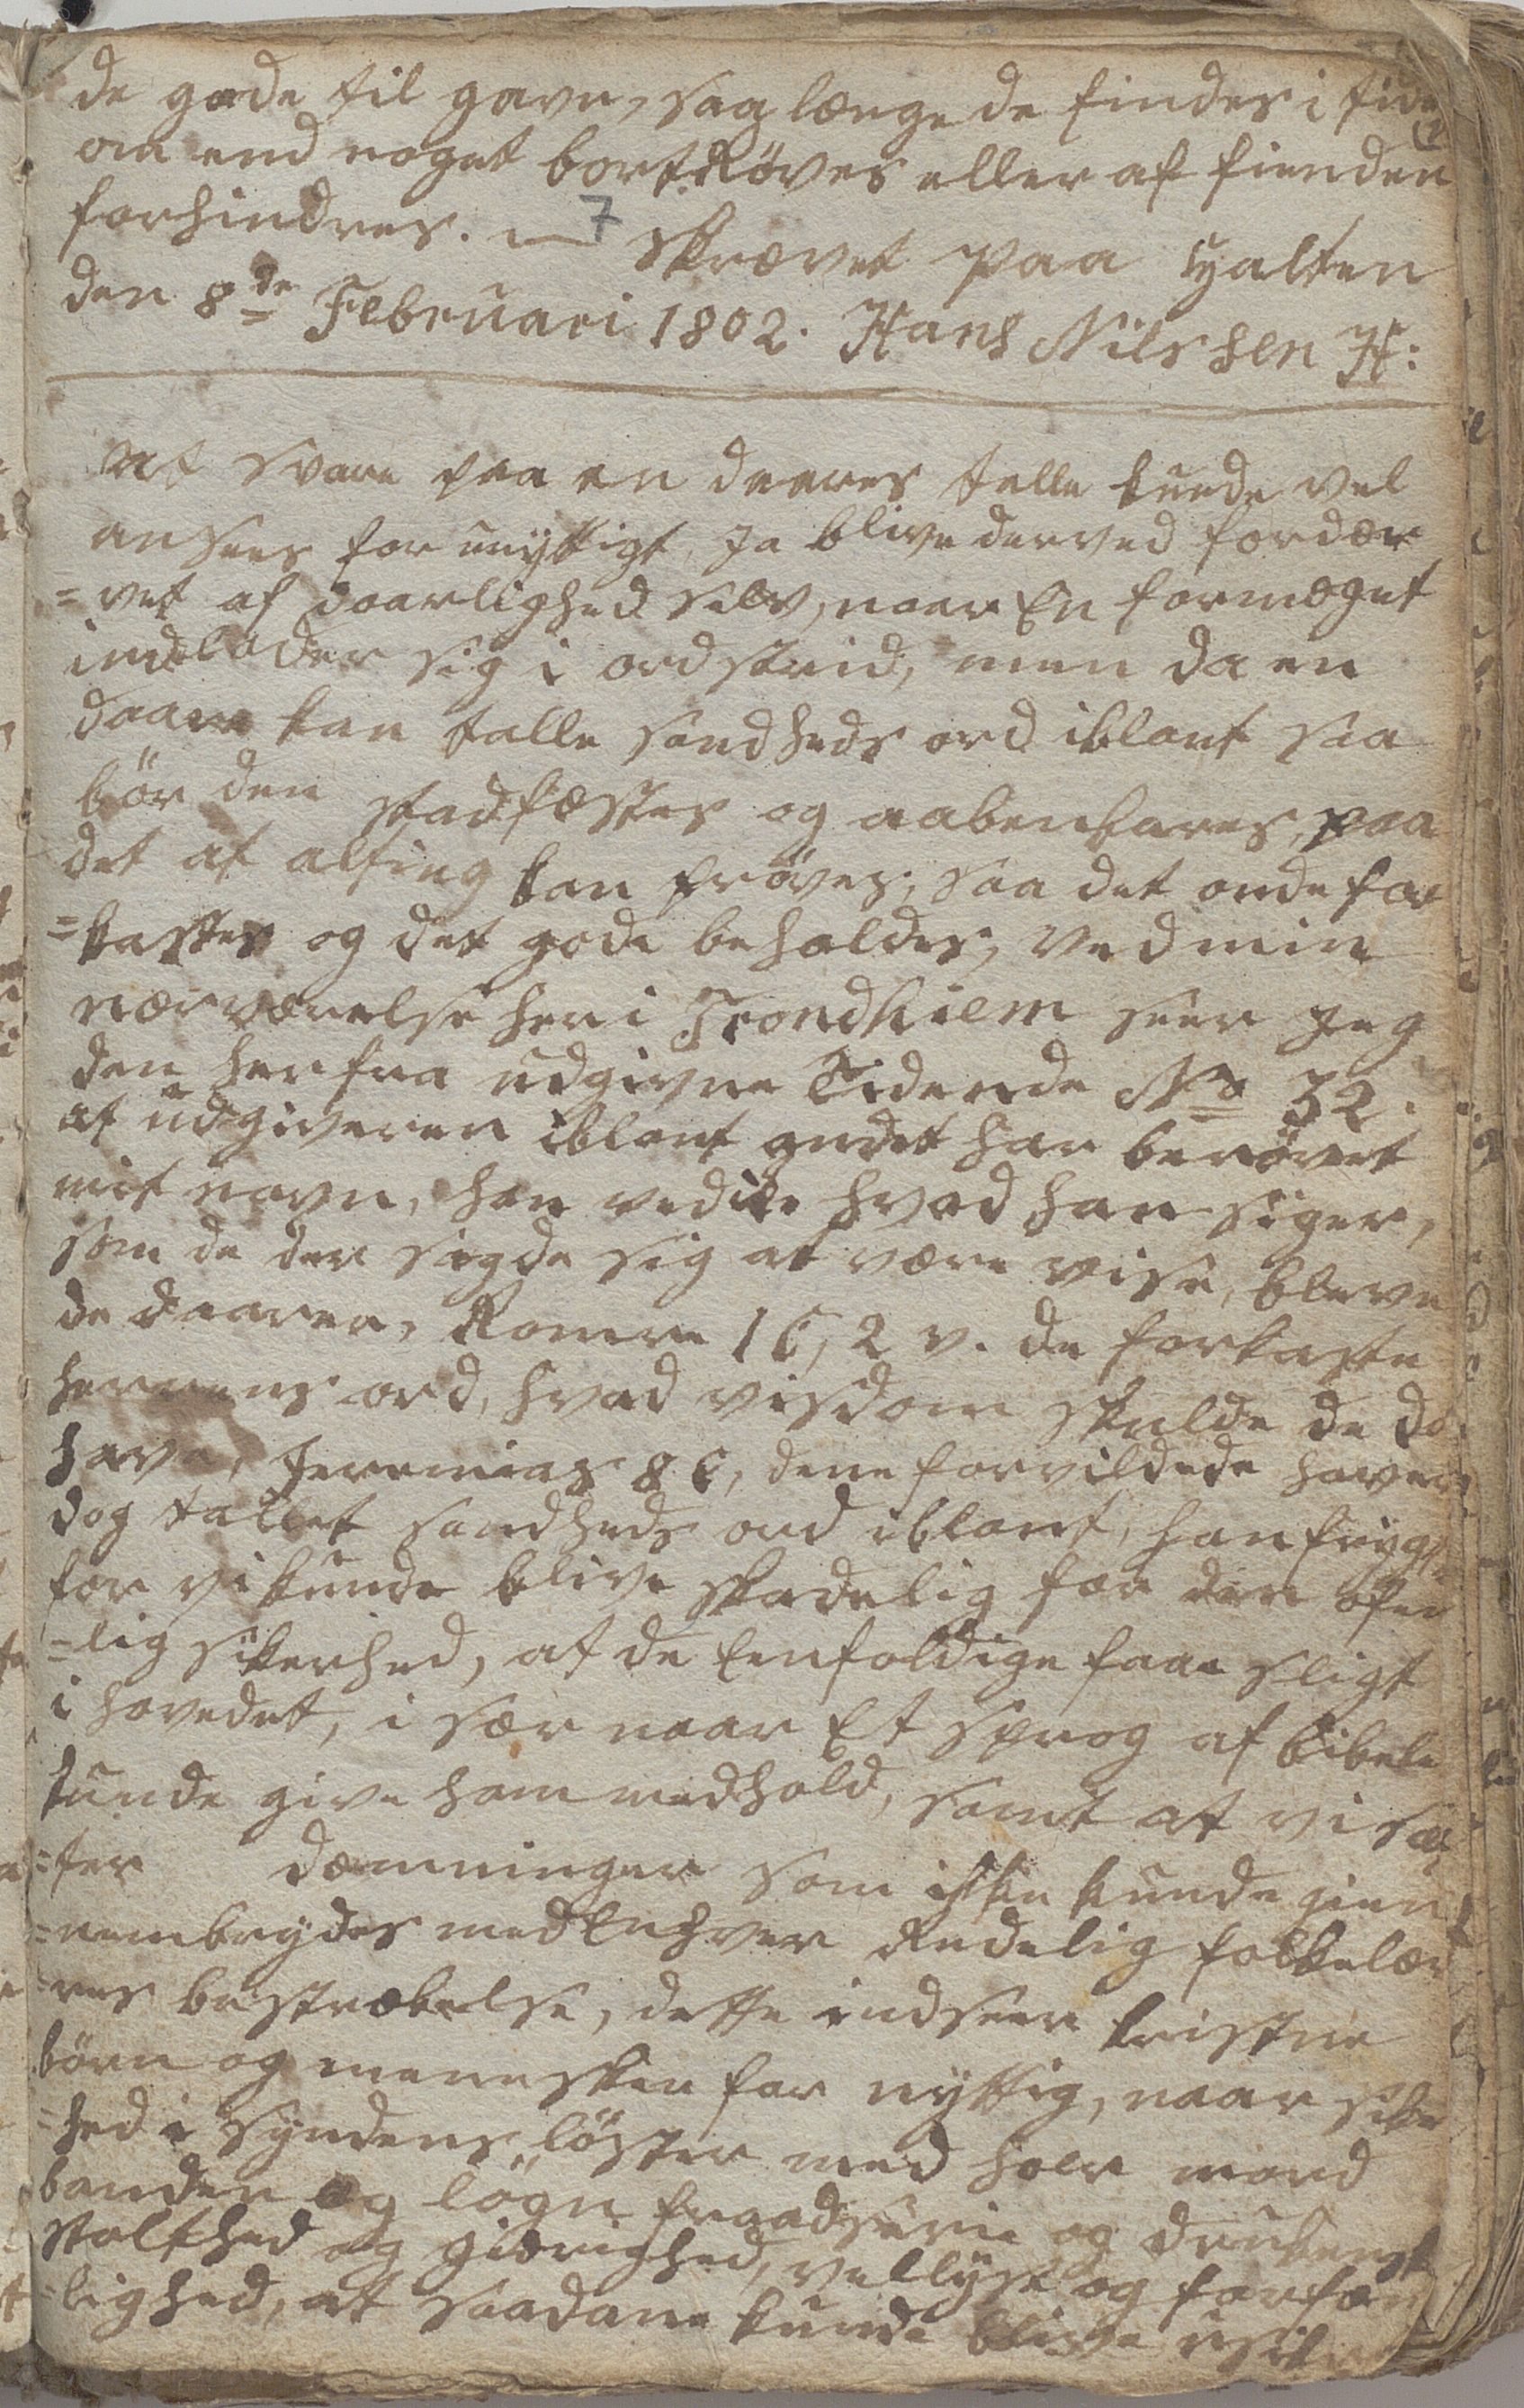 de gode til gavn, saa længe de findes i tide
om end noget bortRöves eller af fienden
forhindres. 7 Skrevet paa Halten
den 8de Februari 1802. Hans Nilshen H:
At svare paa en daares talle kunde vel
ansees for unyttigt, Ja blive derved fordær
=vet af daarlighed selv, naar En formeget
indlader sig i ordstrid, men da en
daare kan talle sandheds ord iblant saa
bör den stadfæstes og aabenbares, paa
det at alting kan pröves, saa det onde for
=kastes og det gode beholdes, ved min
nærværelse her i Trondhiem seer Jeg
den her fra udgivne Tidende No 32.
at udgiveren iblant andet har berövet
mit navn, han ved ike hvad han siger,
som de der sagde sig at være vise, bleve
de daarer, Romere 1 C, 2 v. de forkaste
herrens ord, hvad visdom skulde de da
have, Jeremias 8 C, dene forvildede haver
dog tallet sandheds ord iblant, han frygter
for vi kunde blive skadelig for den ofen
=lig sikerhed, at de Eenfoldige faae sligt
i hovedet, i sær naar Et sprog af bibelen
kunde give ham medhold, samt at vi sæt
=ter dæmninger som ikke kunde gien
=nembrydes med Enhver Redelig folkelæ
=res bestræbelse, dette indseer kristne
börn og mennesker for nyttig, naar siker
=hed i syndens löster med hoer mord
banden og lögn fraadserie og drukenskab
stolthed og gierighed, vellyst og forfæn
=lighed, at saadane kunde blive usiker